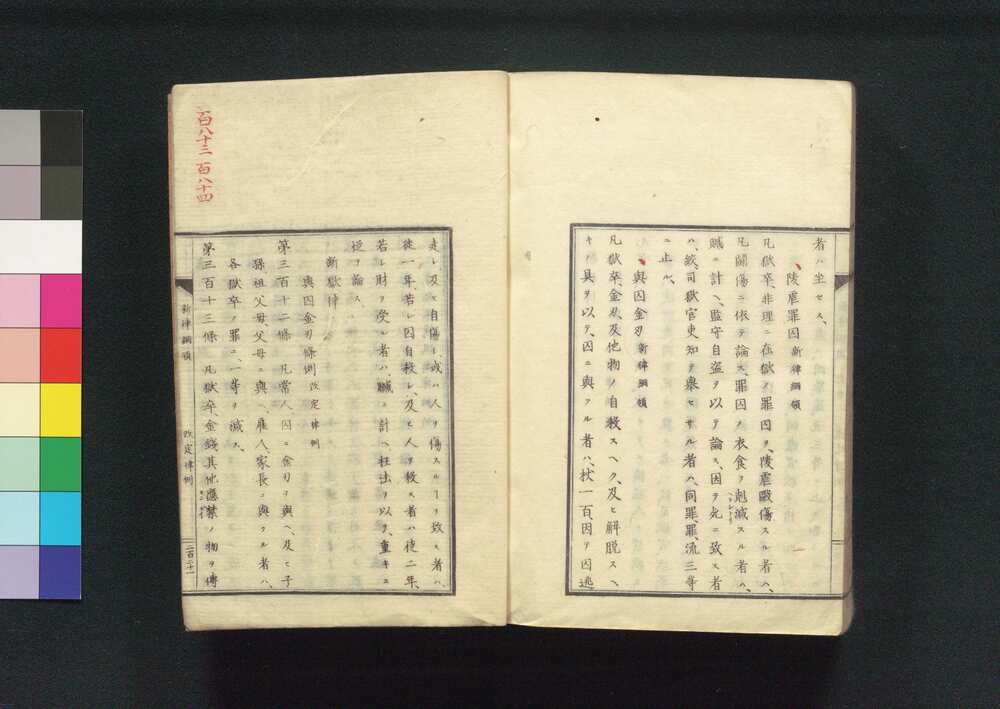 者ハ坐セス、
陵虐罪囚 新律綱領
凡獄卒、非理ニ在獄ノ罪囚ヲ、陵虐毆傷スル者ハ、
凡鬪傷ニ依テ論ス、罪囚ノ衣食ヲ剋減スル者ハ、
贓ニ計ヘ、監守自盗ヲ以テ論ス、因テ死ニ致ス者
ハ、絞、司獄官吏知テ擧セサル者ハ、同罪、罪、流三等
ニ止ル、
與囚金刃 新律綱領
凡獄卒、金刃及他物ノ自殺スヘク、及ヒ解脱スヘ
キノ具ヲ以テ、囚ニ與フル者ハ、杖一百因テ囚逃
走シ及ヒ自傷シ或ハ人ヲ傷スルヿヲ致ス者ハ、
徒一年、若シ囚自殺シ、及ヒ人ヲ殺ス者ハ徒二年、
若シ財ヲ受ル者ハ、贓ニ計ヘ枉法ヲ以テ、重キニ
從テ論ス、
新獄律
與囚金刃條例 改定律例
第三百十二條 凡常人、囚ニ金刃ヲ與ヘ及ヒ子
孫祖父母、父母ニ與ヘ、雇人、家長ニ與フル者ハ、
各獄卒ノ罪ニ、一等ヲ減ス、
第三百十三條 凡獄卒、金錢其他應禁ノ物ヲ傳
新律綱領 改定律例 二百二十一
百八十三 百八十四